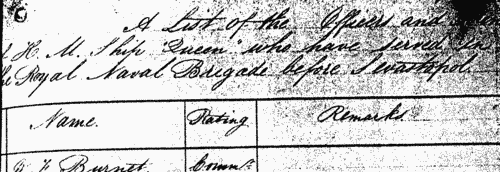 A List of the Officers and
H. M. Ship "Queen" who have served in
the Royal Naval Brigade before Sevastopol.
Name. Rating Remarks.
F. Burnet Comm^r